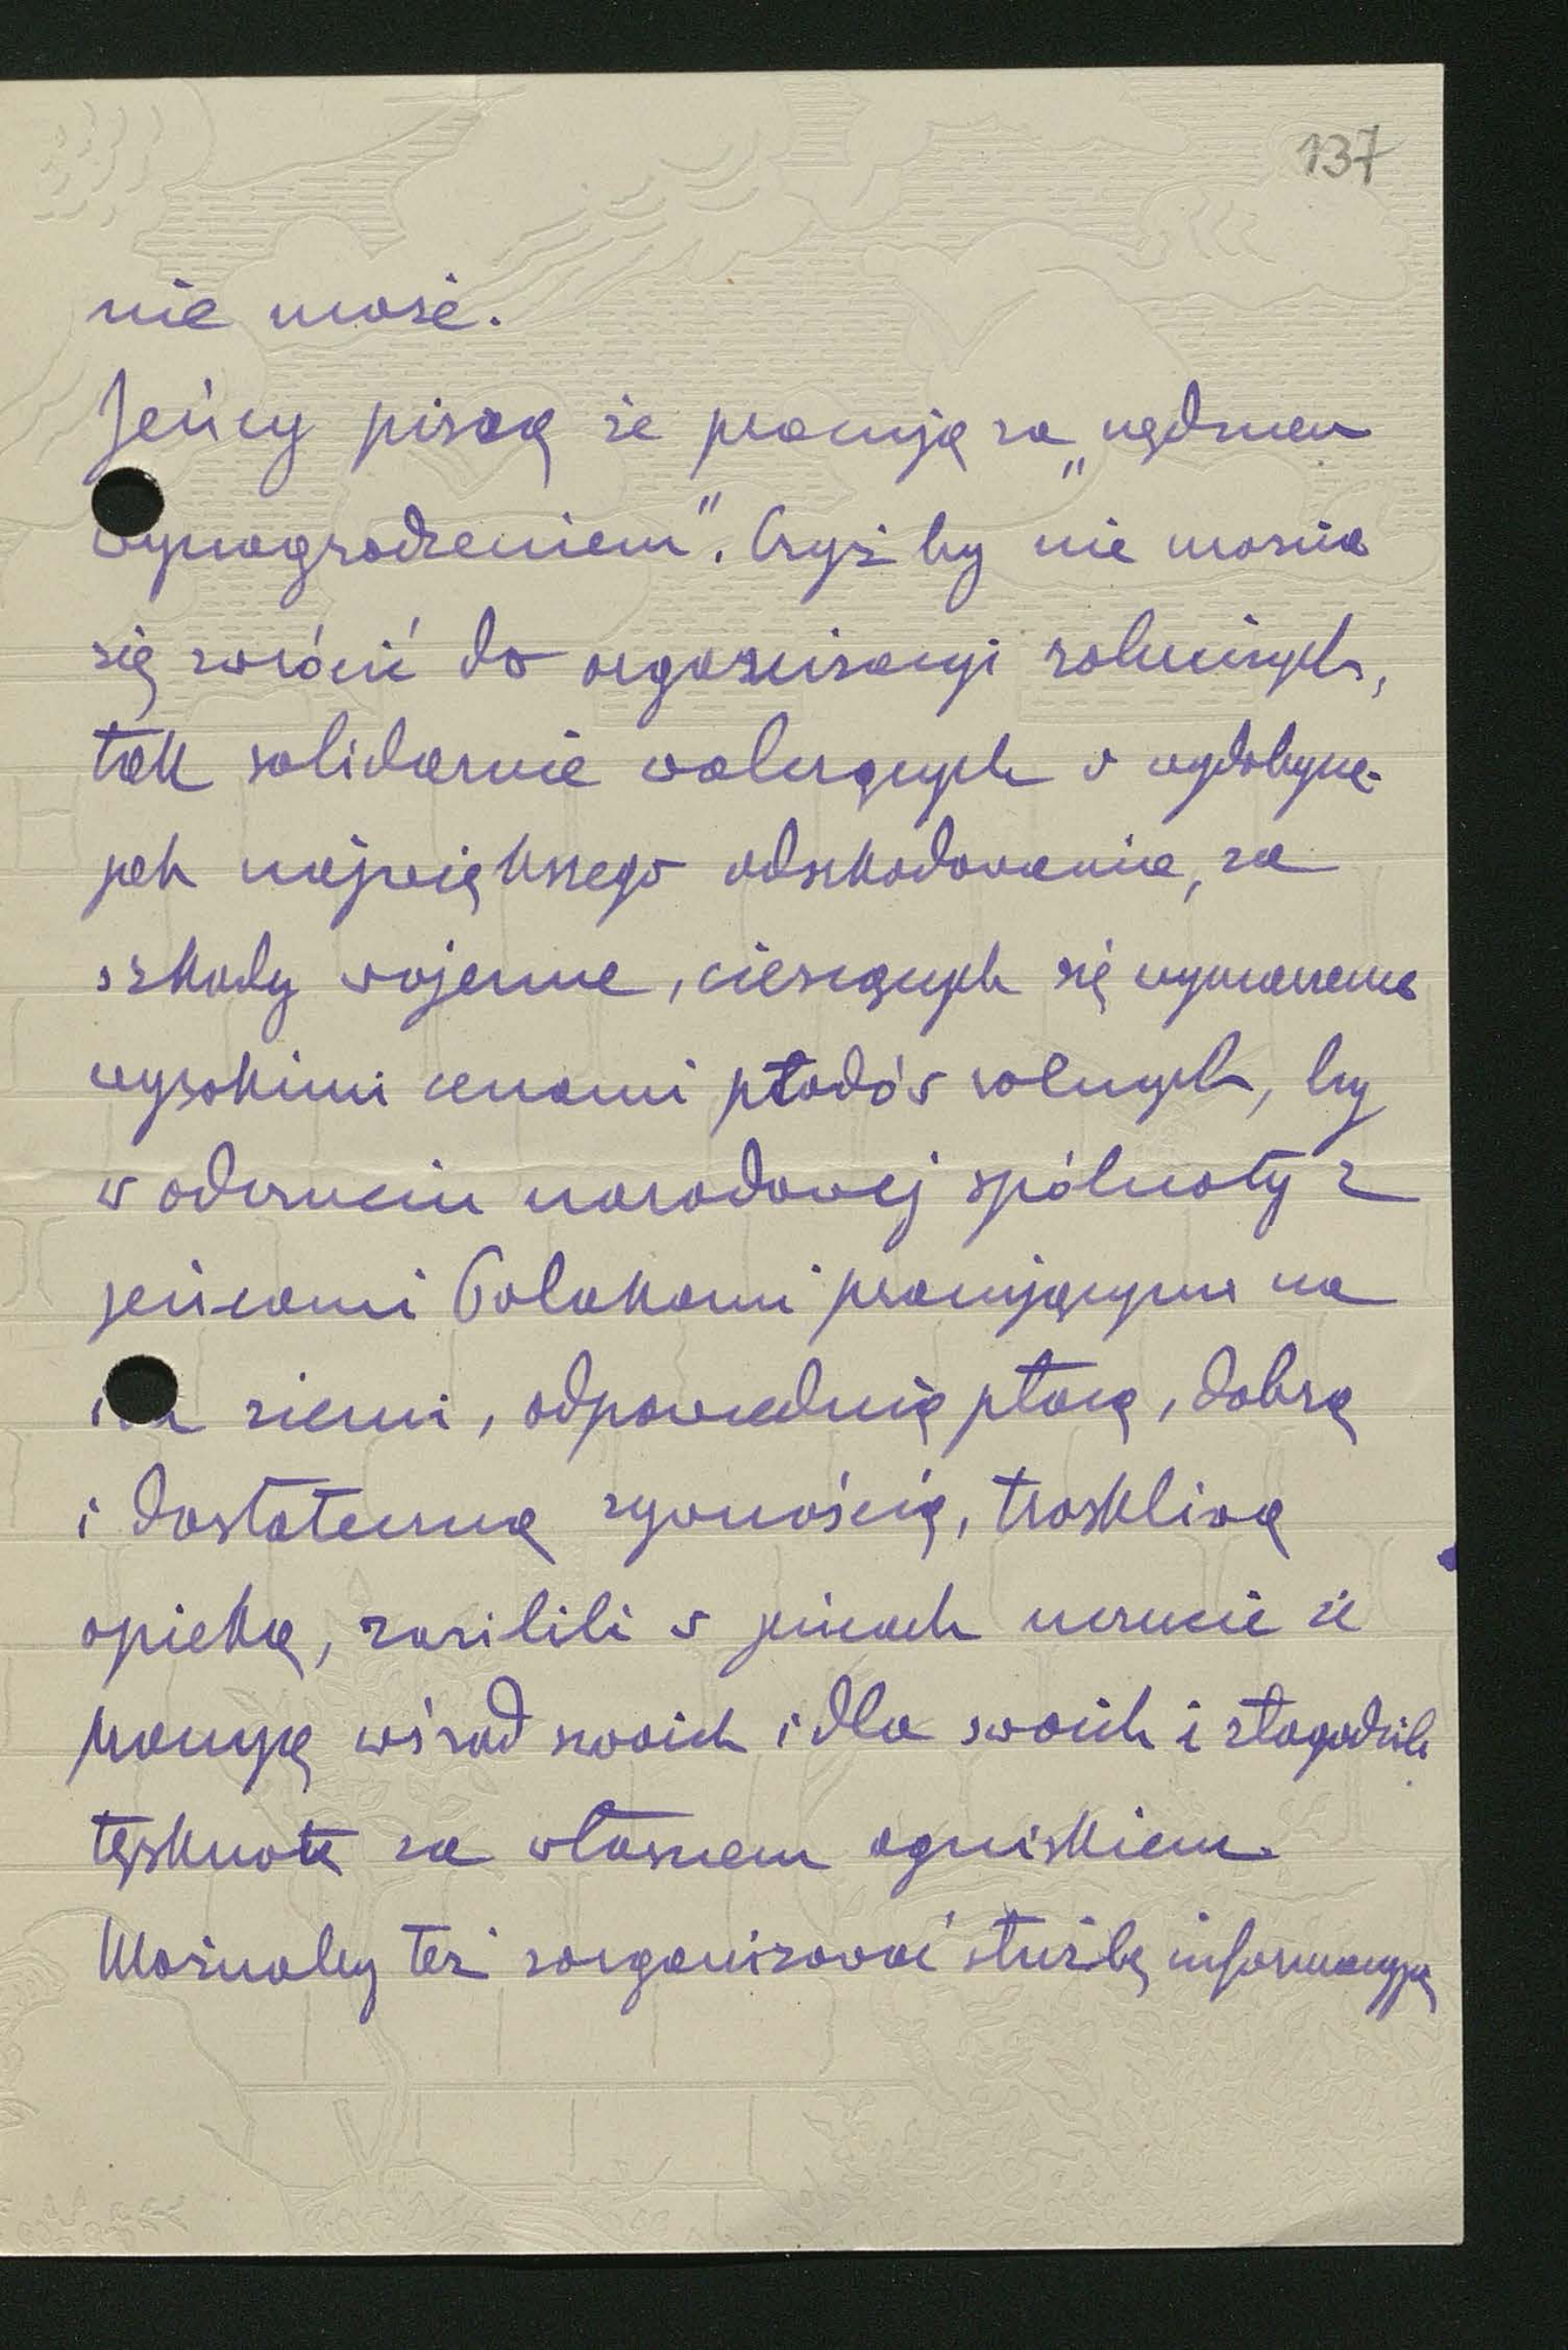 137
nie może.
Jeńcy piszą że pracują za „nędznem
wynagrodzeniem". Czyż by nie można
się zwrócić do organizacyi rolniczych,
tak solidarnie walczących o
jak największego odszkodowania, za
szkody wojenne, cieszących się
wysokimi cenami płodów rolnych, by
w odczuciu narodowej spólnoty z
jeńcami Polakami pracującymi na
ich ziemi, odpowiednią płacą, dobrą
i dostateczną żywnością, troskliwą
opieką, zasilili w jeńcach uczucie że
pracują wśród swoich i dla swoich i złagodzili
tęsknotę za własnem ogniskiem.
Możnaby też zorganizować służbę informacyjną